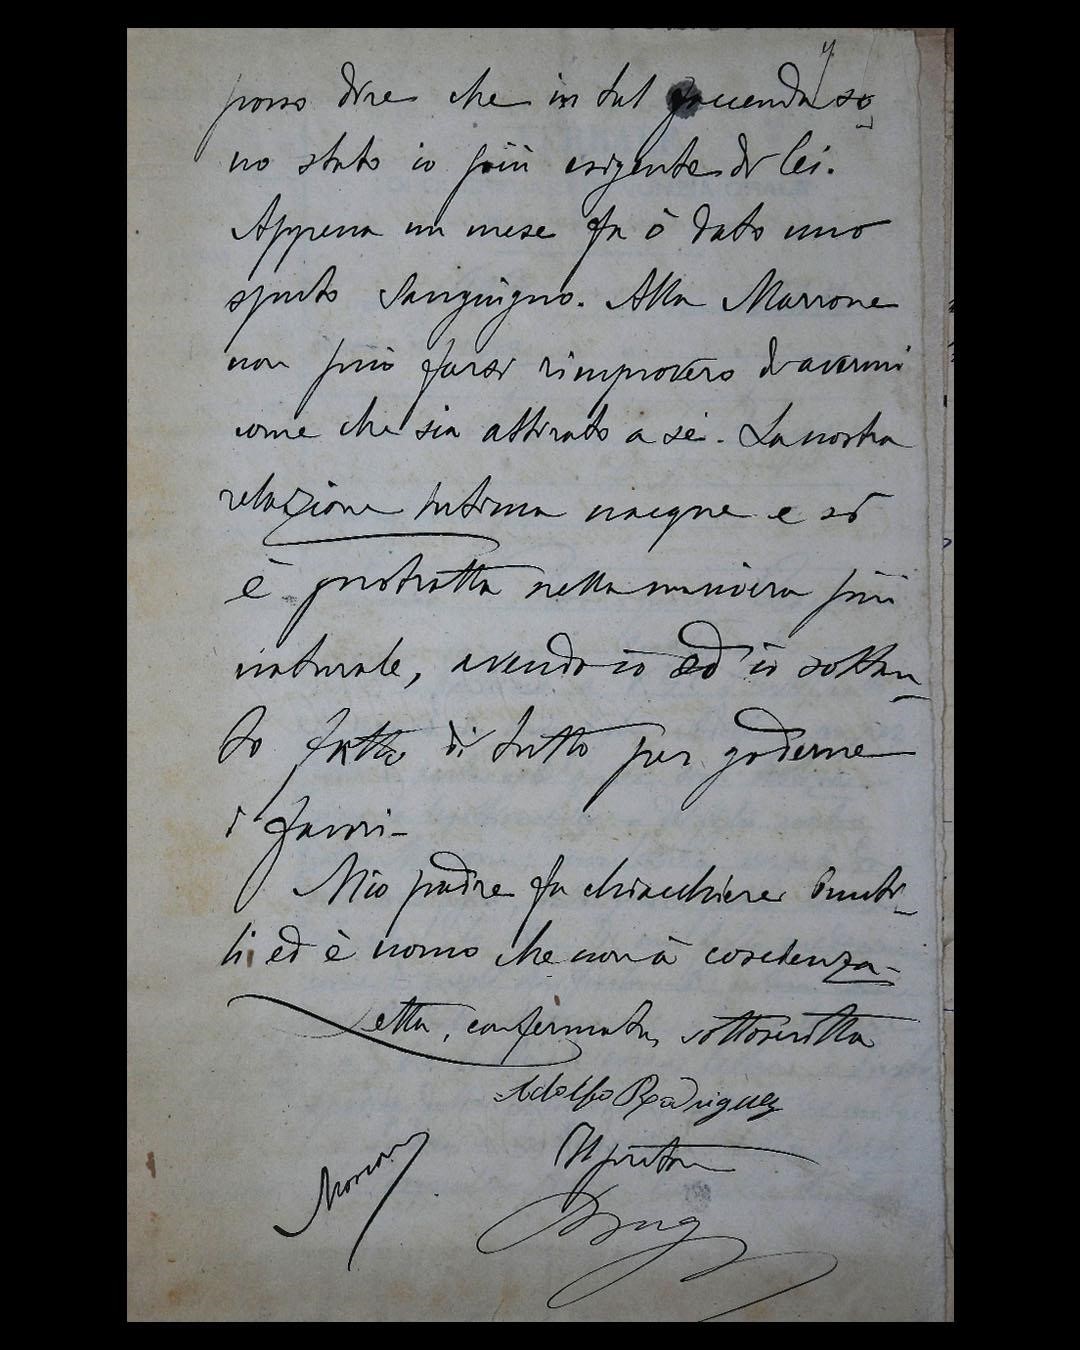 posso dire che in tal faccenda so
no stato io più esigente di lei.
Appena un mese fa ò dato uno
sputo sanguigno. Alla Marrone
non può farsi rimprovero di avermi
come che sia attirato a sè. La nostra
relazione intima nacque e si
è protratta nella maniera più
naturale, avendo io ed io soltan
to fatto di tutto per goderne
i favori -
Mio padre fa chiacchiere inuti
li ed è uomo che non à coscienza -
Letta, confermata, sottoscritta
Adolfo Rodriguez
Il pretore